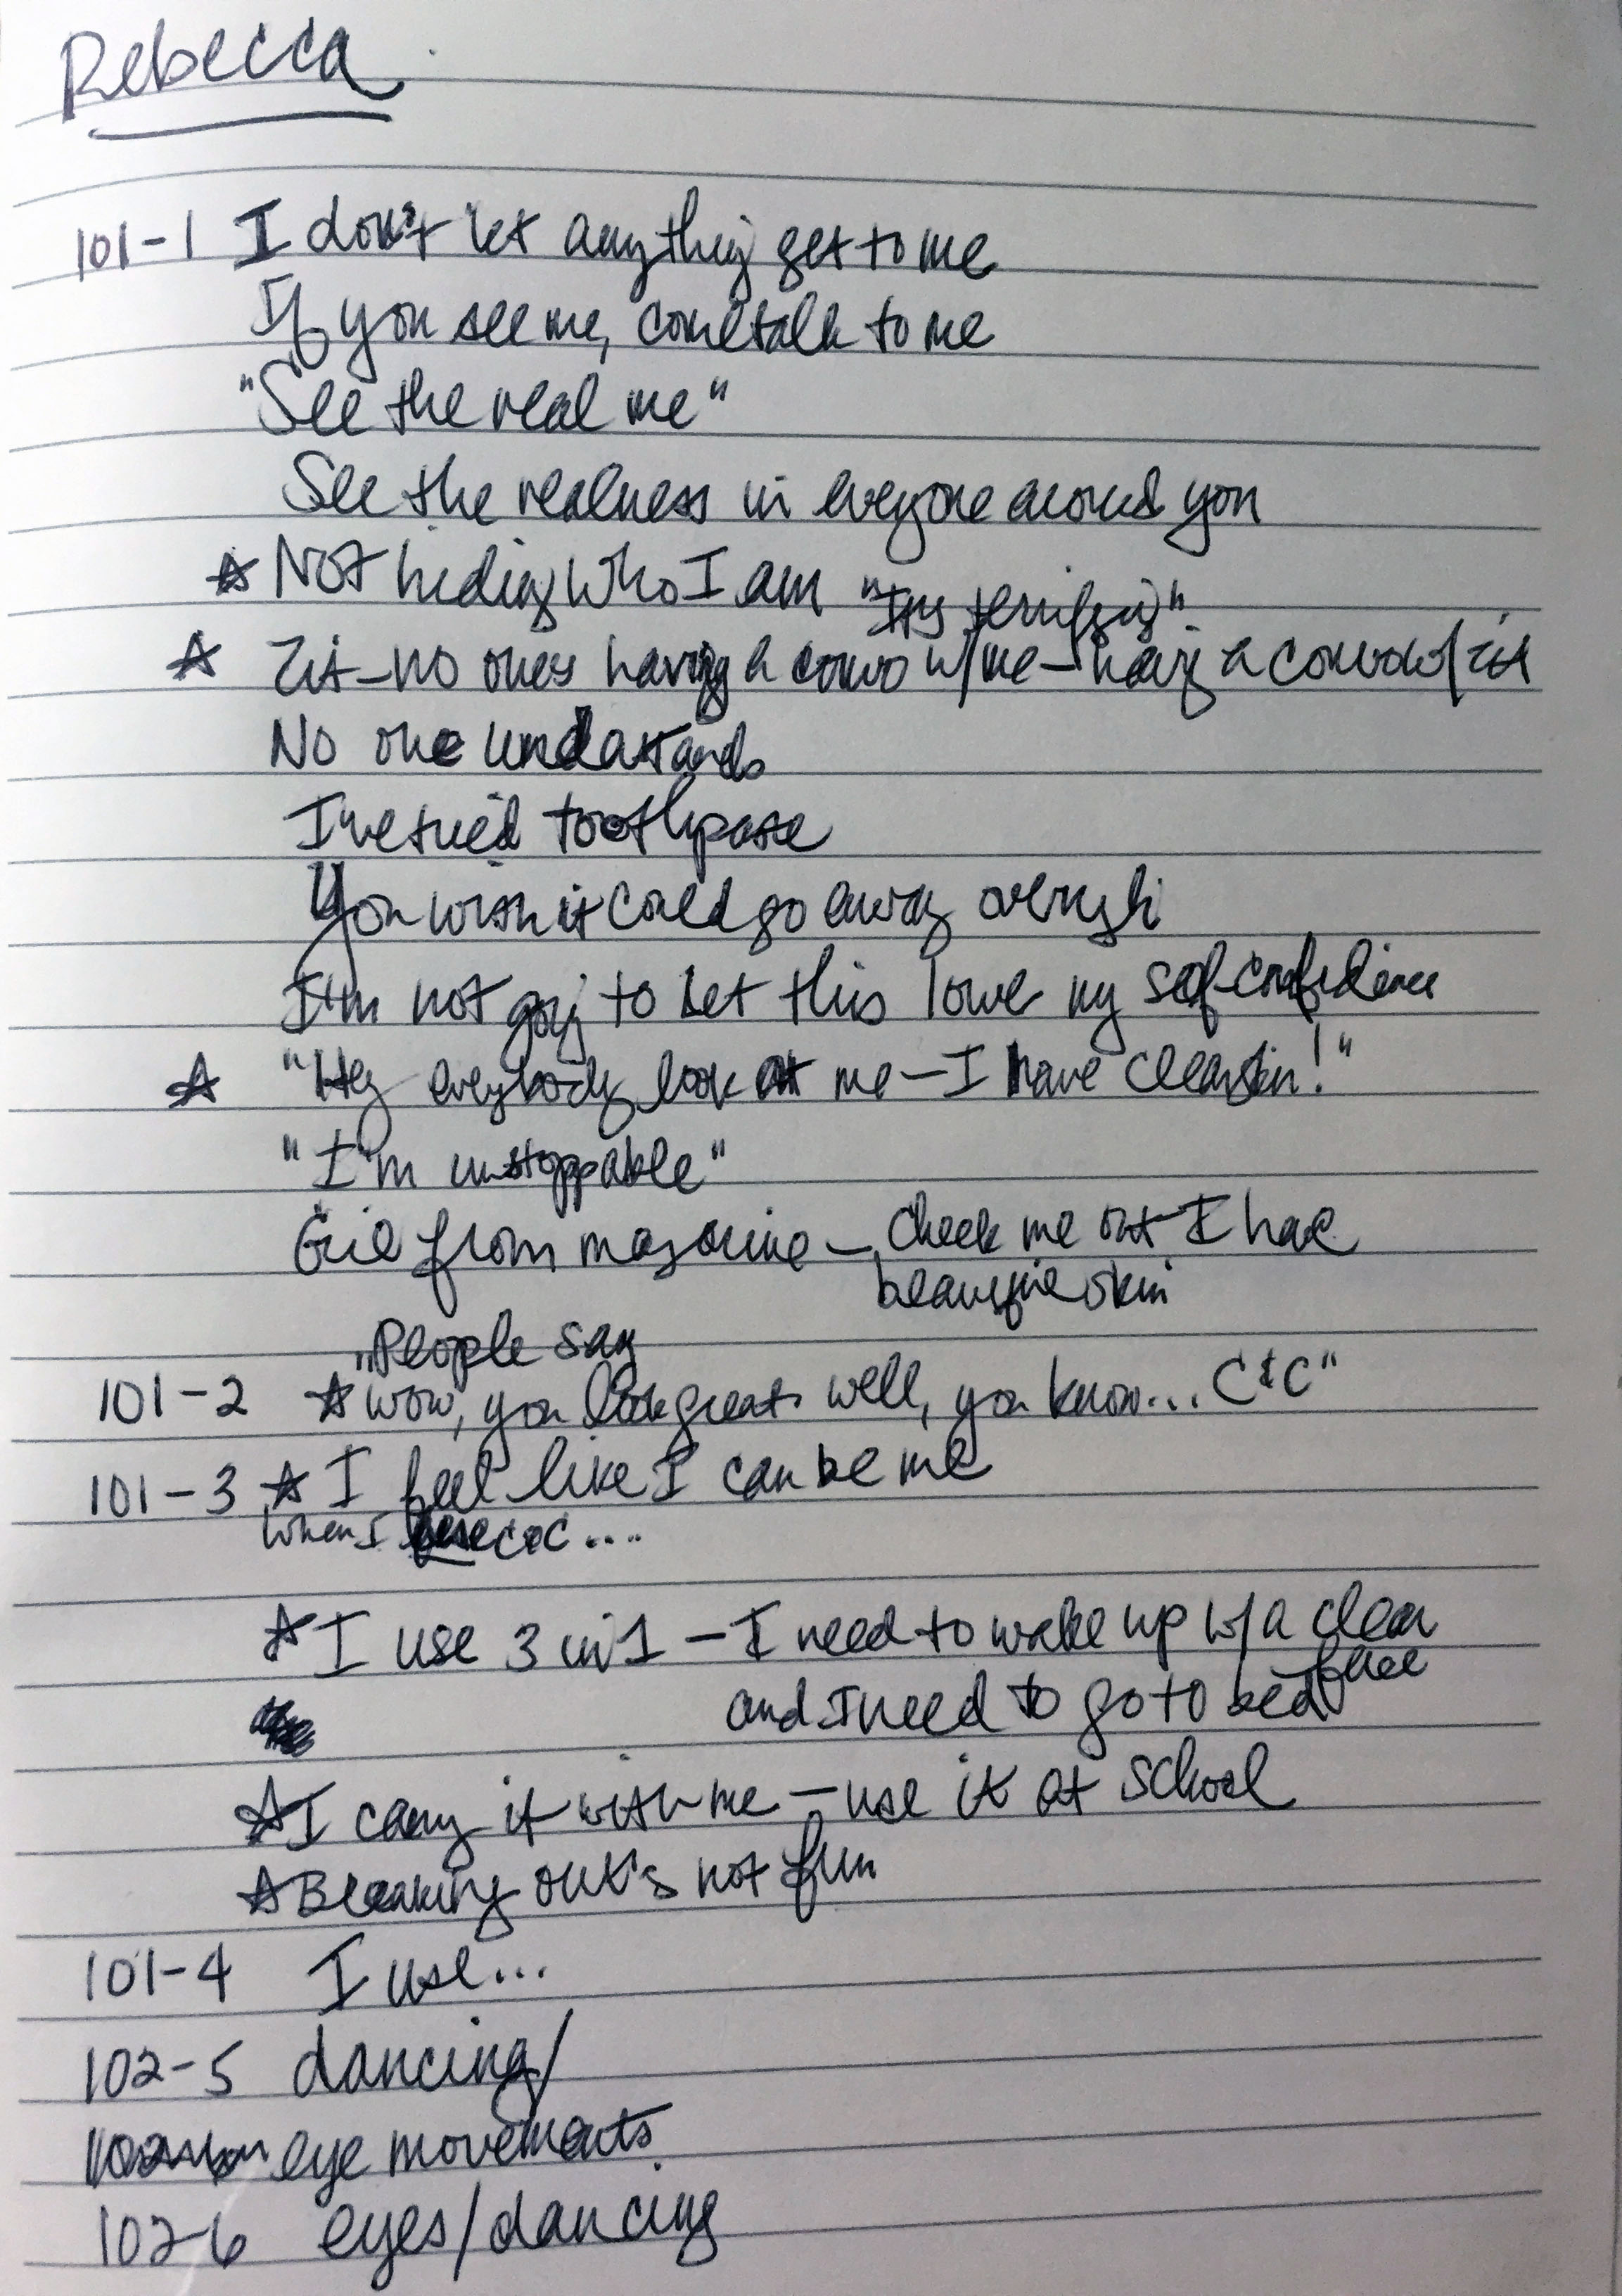 Rebecca
101-1 I don't let anything get to me
If you see me, come talk to me
"See the real me"
See the realness in everyone around you
☆ Not hiding who I am "It's terrifying"
☆ Zit - no ones having a convo w/me - having a convo w/ zit
No one understands
I've tried toothpaste
You wish it could go away
I'm not going to let this lower my self-confidence
☆ "Hey everybody look at me - I have clear skin!"
"I'm unstoppable"
Girl from magazine - check me out I have
beautiful skin
"People say
101-2 ☆ wow, you look great. well, you know... C&C"
101-3 ☆ I feel like I can be me
when I use C&C ....
☆ I use 3 in 1 - I need to wake up w/a clear
face
and I need to go to bed
☆ I carry it with me - use it at school
☆ Breaking out's not fun
101-4 I use...
102-5 dancing/
eye movements
102-6 eyes/dancing